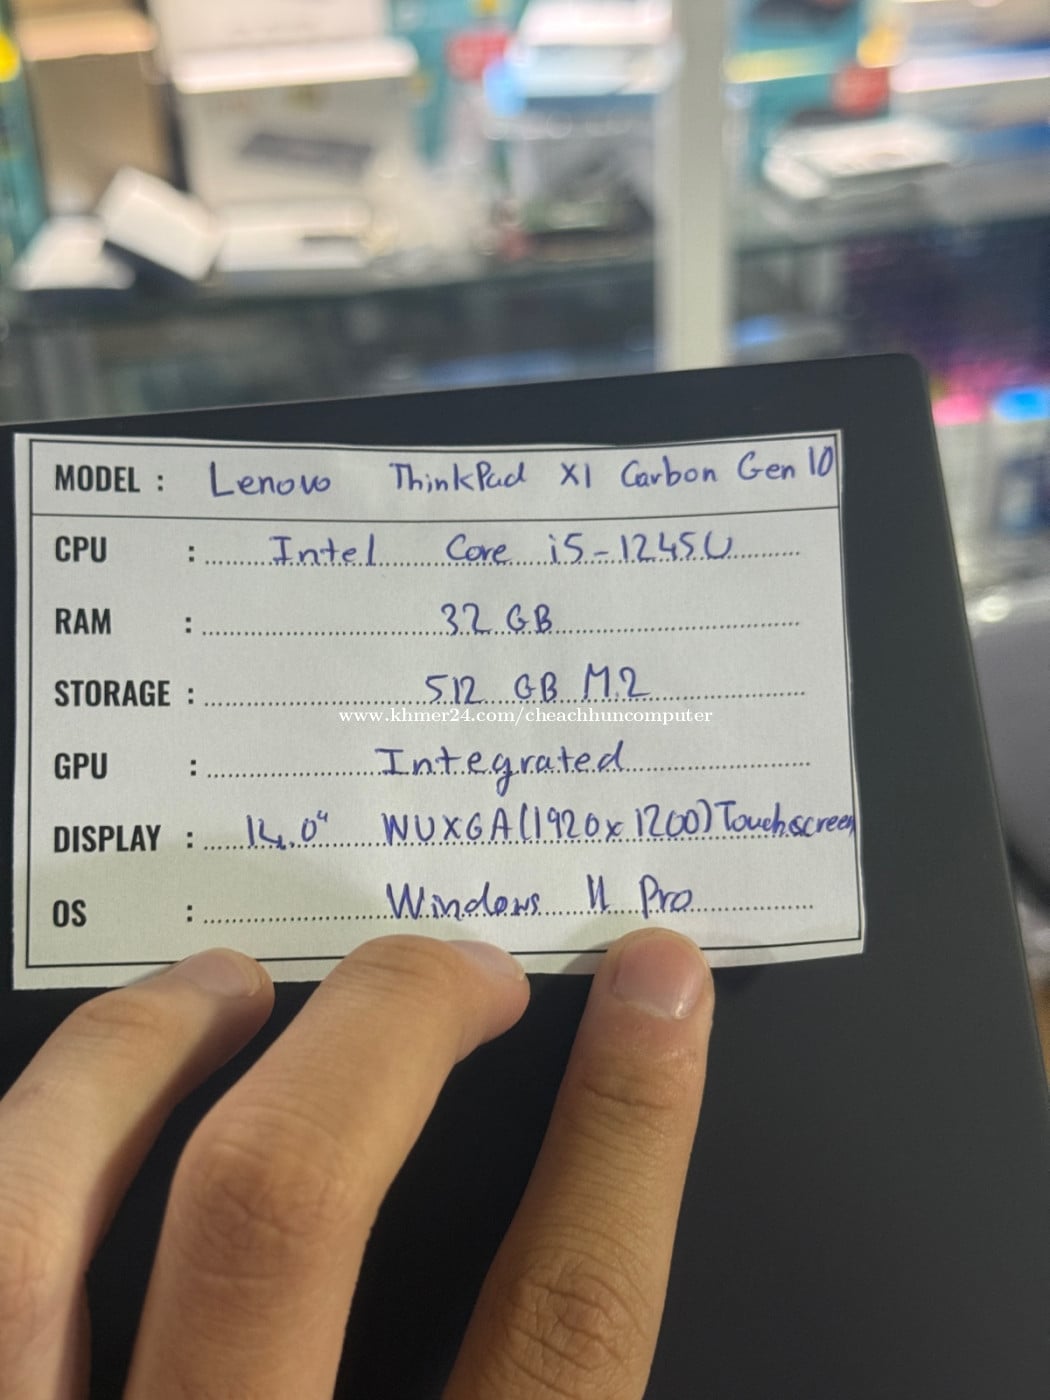 MODEL : Lenovo ThinkPad X1 Carbon Gen 10
CPU : Intel Core i5-1245U
RAM : 32 GB
STORAGE : 512 GB M.2
www.khmer24.com/cheachhuncomputer
GPU : Integrated
DISPLAY : 14.0" WUXGA(1920x1200)Touchscreen
OS : Windows 11 Pro